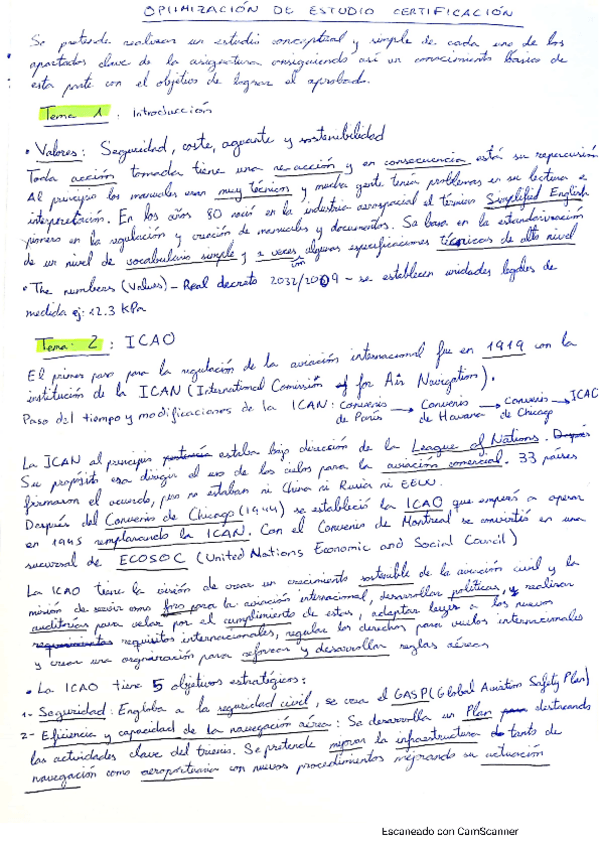 OPTIMIZACIÓN DE ESTUDIO CERTIFICACIÓN
Se pretende realizar un estudio conceptual y simple de cada uno de los
apartados clave de la asignatura consiguiendo así un conocimiento básico de
esta parte con el objetivo de lograr el aprobado.
Tema 1 : Introducción
• Valores: Seguridad, coste, aguante y sostenibilidad
Toda acción tomada tiene una re-acción y en consecuencia está su repercusión
Al principio los manuales eran muy técnicos y mucha gente tenía problemas en su lectura e
interpretación. En los años 80 nació en la industria aerospacial el término Simplified English
pionero en la regulación y creación de manuales y documentos. Se basa en la estandarización
de un nivel de vocabulario simple y a veces con algunas especificaciones técnicas de alto nivel
• The numbers (Values) - Real decreto 2032/2009 - se establecen unidades legales de
medida ej: 2.3 KPa
Tema 2 : ICAO
El primer paso para la regulación de la aviación internacional fue en 1919 con la
institución de la ICAN (International Comission of for Air Navigation).
Paso del tiempo y modificaciones de la ICAN: Convenio de París → Convenio de Havana → Convenio de Chicago → ICAO
La ICAN al principio pertenecía estaba bajo dirección de la League of Nations. Después
Su propósito era dirigir el uso de los cielos para la aviación comercial. 33 países
firmaron el acuerdo, pero no estaban ni China ni Rusia ni EEUU.
Después del Convenio de Chicago (1944) se estableció la ICAO que empezó a operar
en 1945 remplazando la ICAN. Con el Convenio de Montreal se convirtió en una
sucursal de ECOSOC (United Nations Economic and Social Council)
La ICAO tiene la visión de crear un crecimiento sostenible de la aviación civil y la
misión de servir como foro para la aviación internacional, desarrollar políticas, y realizar
auditorías para velar por el cumplimiento de estas, adaptar leyes a los nuevos
requisitos internacionales, regular los derechos para vuelos internacionales
y crear una organización para reforzar y desarrollar reglas aéreas
• La ICAO tiene 5 objetivos estratégicos:
1- Seguridad: Engloba a la seguridad civil, se crea el GASP (Global Aviation Safety Plan)
2- Eficiencia y capacidad de la navegación aérea: Se desarrolla un Plan destacando
las actividades clave del trienio. Se pretende mejorar la infraestructura tanto de
navegación como aeroportuaria con nuevos procedimientos mejorando su actuación
Escaneado con CamScanner